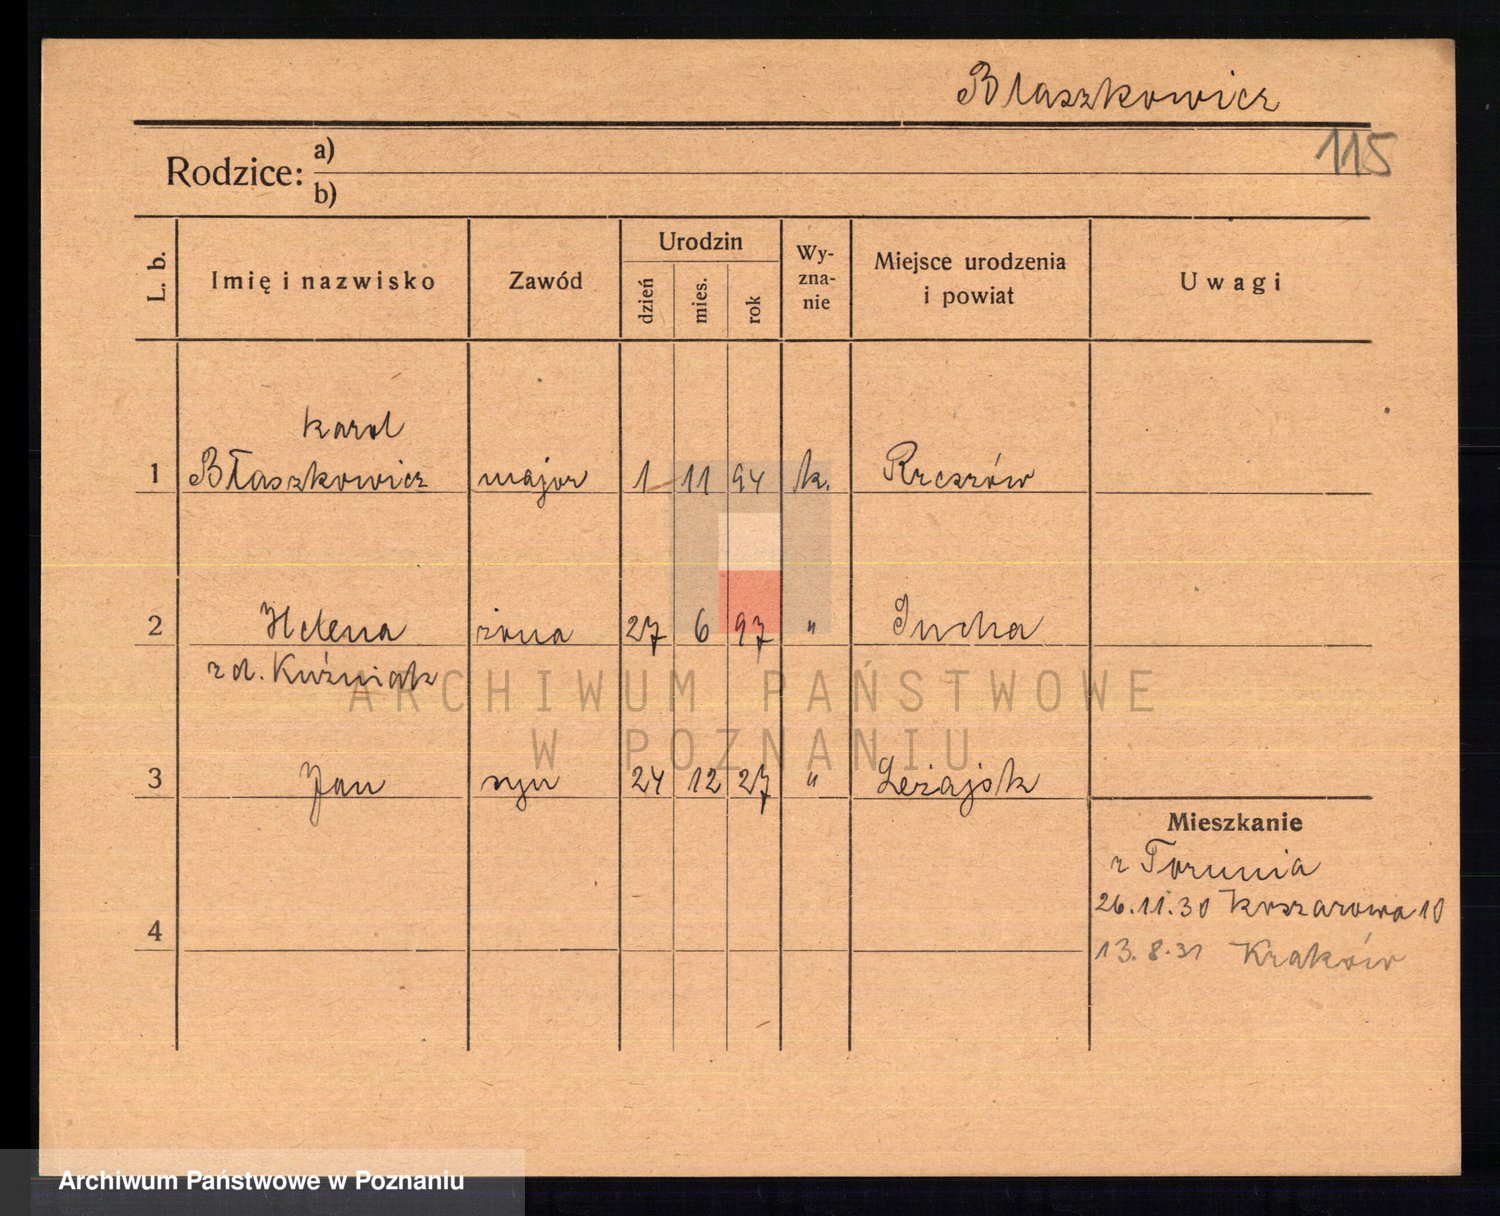 Błaszkowicz
115
Rodzice: a)
b)
L. b. Imię i nazwisko Zawód Urodzin dzień mies. rok Wy-zna-nie Miejsce urodzenia i powiat Uwagi
Karol
1 Błaszkowicz major 1 11 94 k. Rzeszów
2 Helena żona 27 6 97 " Sucha
z d. Kuźniak
3 Jan syn 24 12 27 " Leżajsk
Mieszkanie
z Torunia
26.11.30 Koszarowa 10
4
13.8.31 Kraków
ARCHIWUM PAŃSTWOWE
W POZNANIU
Archiwum Państwowe w Poznaniu